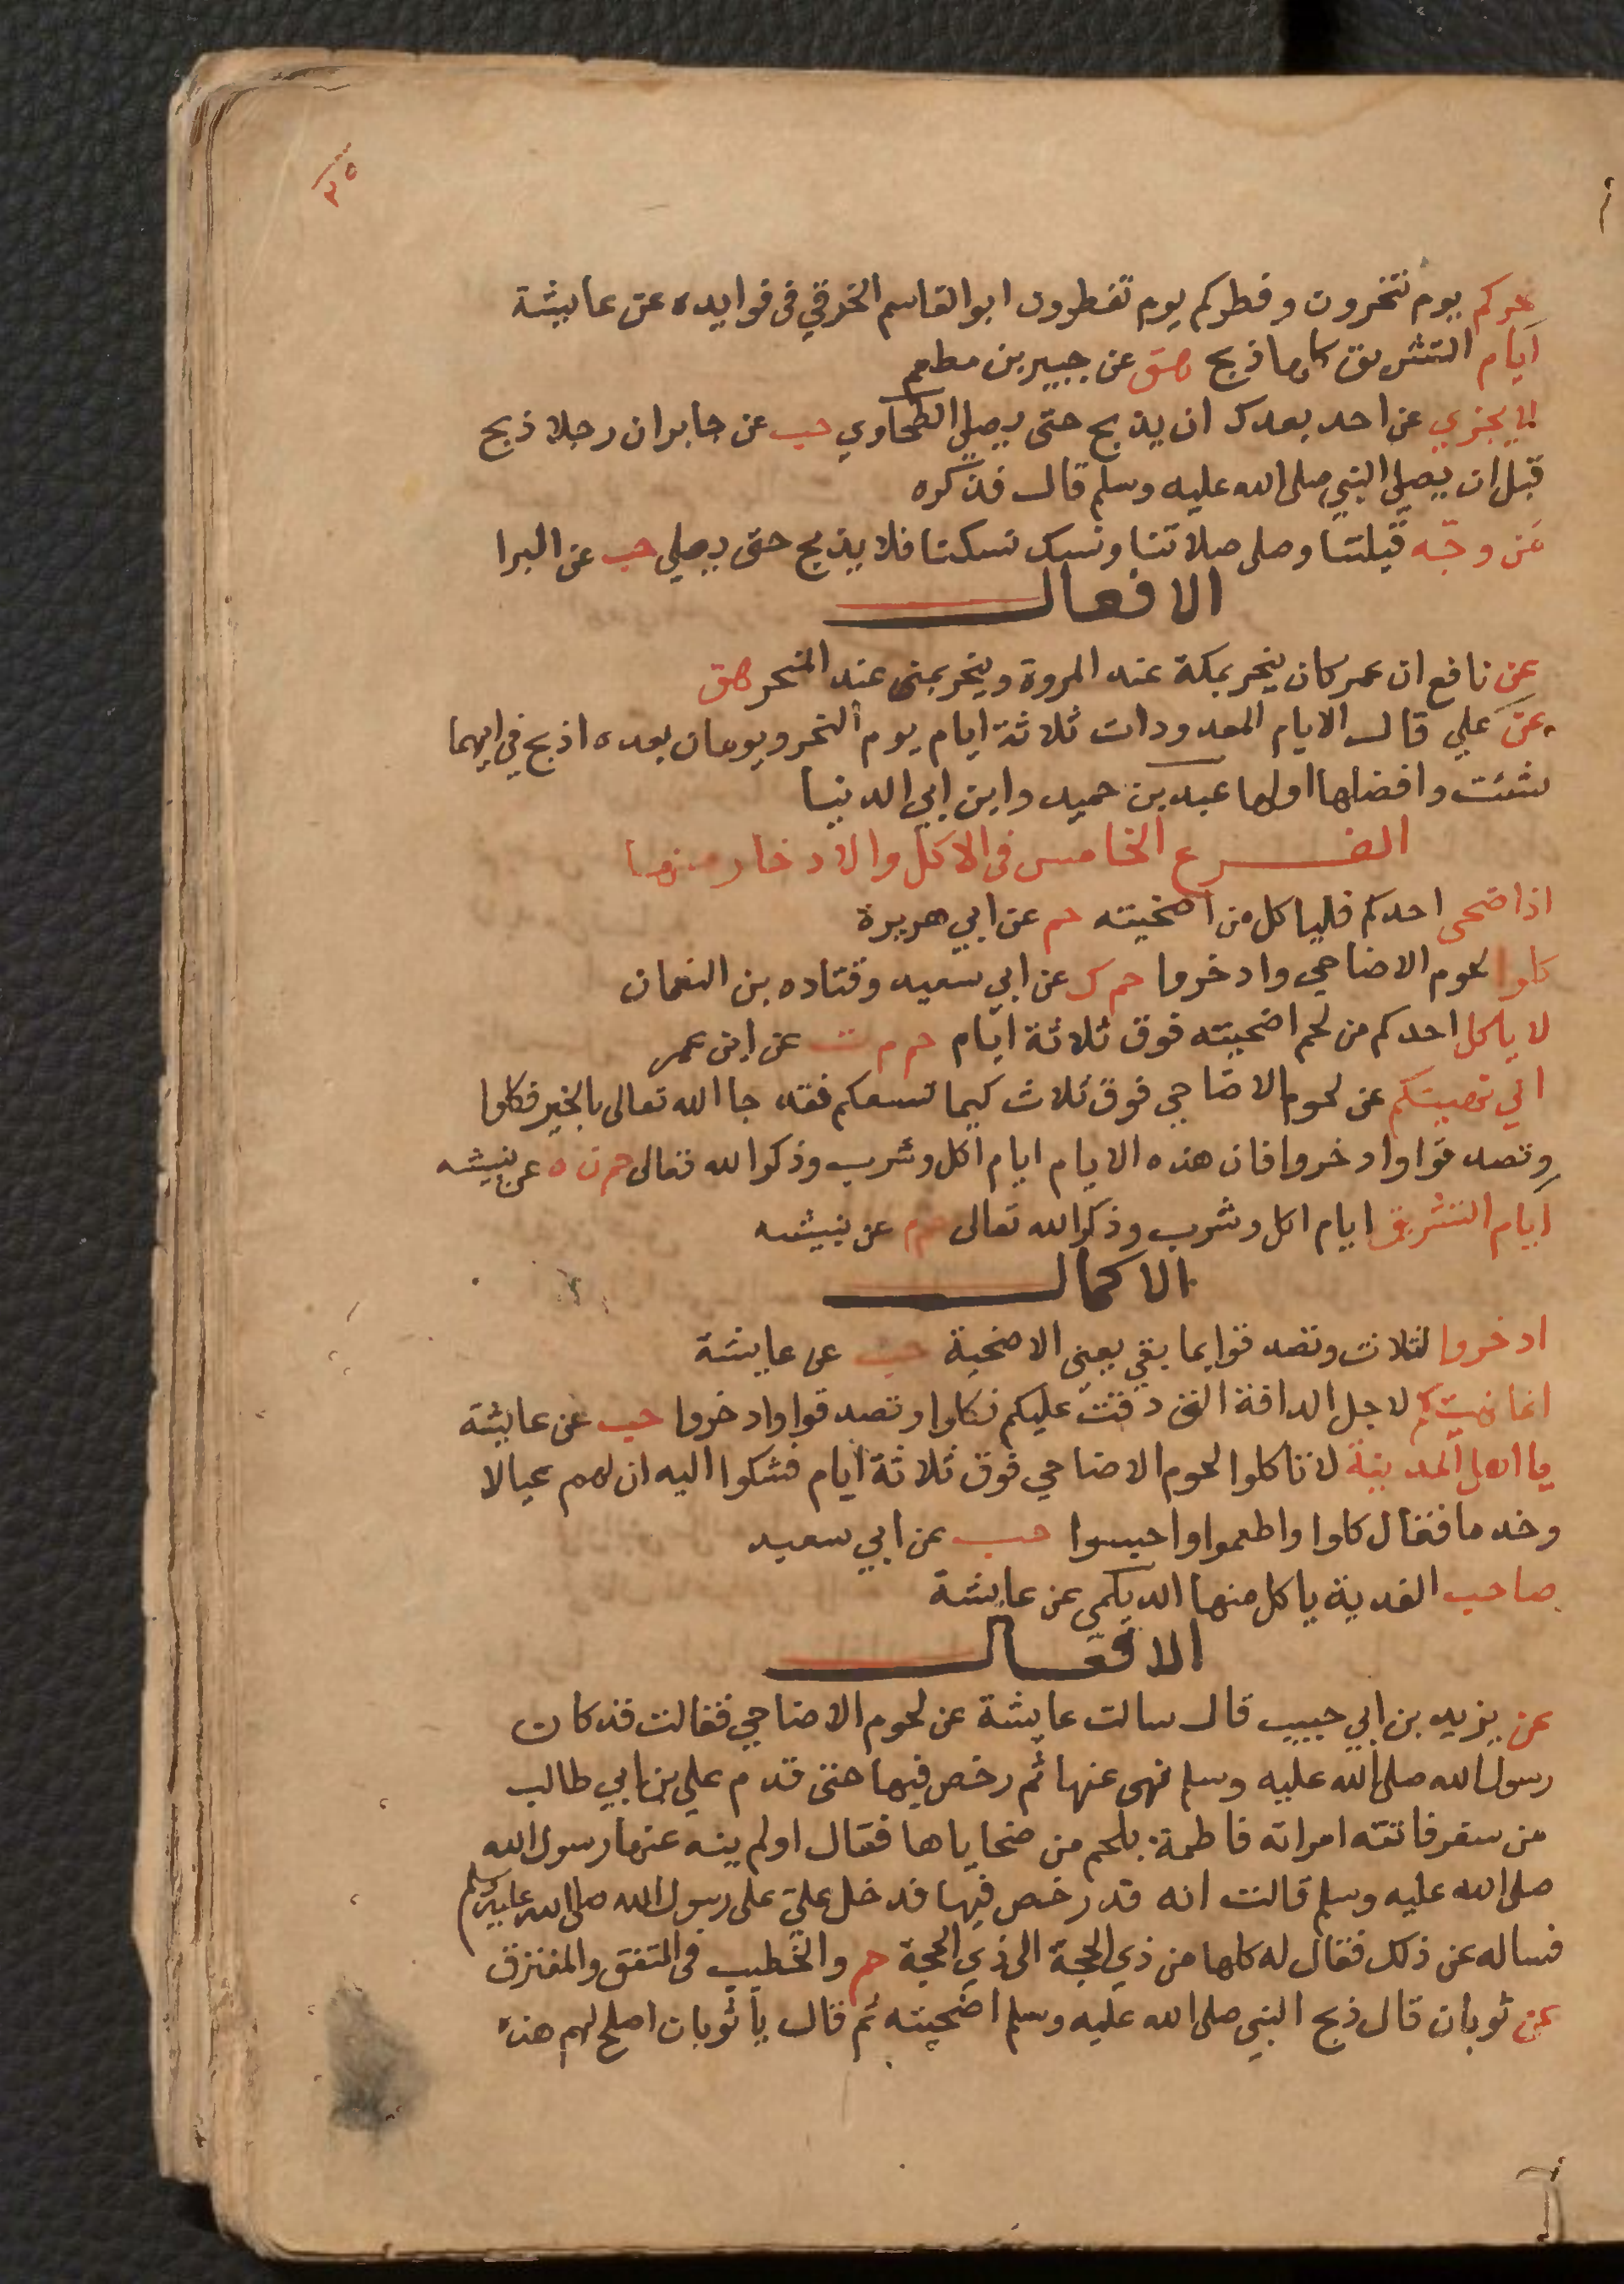 ٣٥
نحركم يوم تنحرون وفطركم يوم تفطرون ابو القاسم الخرقي فى فوايده عن عايشة
ايام التشريق كلها ذبح هق عن جبير بن مطعم
لا يجزي عن احد بعدك ان يذبح حتى يصلي الطحاوي حب عن جابر ان رجلا ذبح
قبل ان يصلي النبي صلى الله عليه وسلم قال فذكره
من وجّه قبلتنا وصلى صلاتنا ونسك نسكنا فلا يذبح حتى يصلي حب عن البرا
الافعال
عن نافع ان عمر كان ينحر بمكة عند المروة وينحر بمنى عند المنحر هق
عن علي قال الايام المعدودات ثلاثة ايام يوم النحر ويومان بعده اذبح في ايهما
شئت وافضلها اولها عبد بن حميد وابن ابي الدنيا
الفرع الخامس فى الاكل والادخار منها
اذا ضحى احدكم فليا كل من اضحيته حم عن ابي هريرة
كلوا لحوم الاضاحي وادخروا حم ك عن ابي سعيد وقتاده بن النعمان
لا ياكل احدكم من لحم اضحيته فوق ثلاثة ايام حم م ت عن ابن عمر
اني نهيتكم عن لحوم الاضاحي فوق ثلاث كيما تسعكم فقد جا الله تعالى بالخير فكلوا
وتصدقوا وادخروا فان هذه الايام ايام اكل وشرب وذكر الله تعالى حم ن ه عن نبيشه
ايام التشريق ايام اكل وشرب وذكر الله تعالى حم م عن نبيشه
الاكمال
ادخروا لثلاث وتصدقوا بما بقي يعني الاضحية حب عن عايشة
انما نهيتكم لاجل الدافة التى دفت عليكم فكلوا وتصدقوا وادخروا حب عن عايشة
يا اهل المدينة لا تاكلوا لحوم الاضاحي فوق ثلاثة ايام فشكوا اليه ان لهم عيالا
وخدما فقال كلوا واطعموا واحبسوا حب عن ابي سعيد
صاحب الفدية ياكل منها الديلمى عن عايشة
الافعال
عن يزيد بن ابي حبيب قال سالت عايشة عن لحوم الاضاحي فقالت قد كان
رسول الله صلى الله عليه وسلم نهى عنها ثم رخص فيها حتى قدم علي بن ابي طالب
من سفر فاتته امراته فاطمة بلحم من ضحاياها فقال اولم ينه عنها رسول الله
صلى الله عليه وسلم قالت انه قد رخص فيها فدخل علي على رسول الله صلى الله عليه وسلم
فساله عن ذلك فقال له كلها من ذي الحجة الى ذي الحجة حم والخطيب فى المتفق والمفترق
عن ثوبان قال ذبح النبي صلى الله عليه وسلم اضحيته ثم قال يا ثوبان اصلح لهم هذه